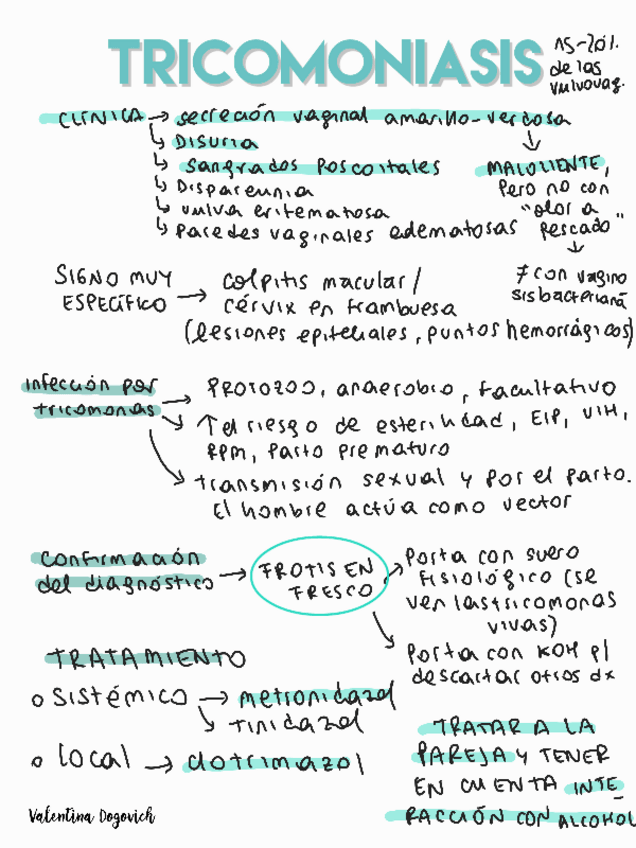 TRICOMONIASIS
15-20%
de las
vulvovag.
CLÍNICA → secreción vaginal amarillo-verdosa
↳ Disuria
↳ Sangrados Poscoitales
↳ Dispareunia
↳ vulva eritematosa
↳ Paredes vaginales edematosas
MALOLIENTE,
Pero no con
"olor a
Pescado"
≠ con vagino
sis bacteriana
SIGNO MUY
ESPECÍFICO → colpitis macular/
cérvix en frambuesa
(lesiones epiteliales, puntos hemorrágicos)
Infección por
tricomonas
→ PROTOZOO, anaerobio, facultativo
↑ el riesgo de esterilidad, EIP, VIH,
RPM, Parto prematuro
transmisión sexual y por el parto.
El hombre actúa como vector
Confirmación
del diagnóstico → FROTIS EN
FRESCO
Porta con suero
fisiológico (se
ven las tricomonas
vivas)
Porta con KOH p/
descartar otros dx
TRATAMIENTO
o Sistémico → metronidazol
↳ Tinidazol
o local → clotrimazol
TRATAR A LA
PAREJA y TENER
EN CUENTA INTE
RACCIÓN CON ALCOHOL
Valentina Dogovich